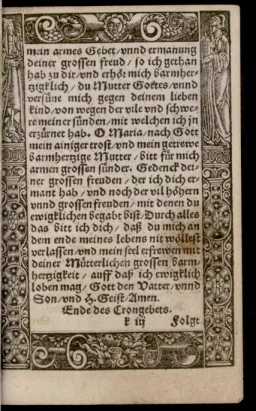 mein armes Gebet/vnnd ermanung
deiner grossen freud/so ich gethan
hab zu dir/vnd erhör mich barmher-
tzigklich/du Mutter Gottes/vnnd
versüne mich gegen deinem lieben
kind/von wegen der vile vnd schwe-
re meiner sünden/mit welchen ich jn
erzürnet hab. O Maria/nach Gott
mein ainiger trost/vnd mein getrewe
barmhertzige Mutter/bitt für mich
armen grossen sünder. Gedenck dei-
ner grossen freuden/der ich dich er-
mant hab/vnd noch der vil höhern
vnnd grossen freuden/mit denen du
ewigklichen begabt bist/Durch alles
das bitt ich dich/daß du mich an
dem ende meines lebens nit wöllest
verlassen/vnd mein seel erfrewen mit
deiner Mütterlichen grossen barm-
hertzigkeit/auff daß ich ewigklich
loben mag/Gott den Vatter/vnnd
Son/vnd H. Geist/Amen.
Ende des Crongebets.
k iij Folgt